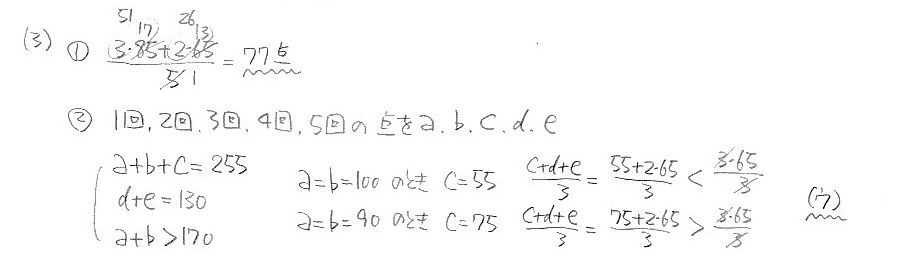 (3) ① (3·85+2·65)/5 = 77点
51 17 26 13 1
② 1回, 2回, 3回, 4回, 5回の点をa, b, c, d, e
a+b+c=255
d+e=130
a+b>170
a=b=100 のとき c=55 (c+d+e)/3 = (55+2·65)/3 < (3·65)/3
a=b=90 のとき c=75 (c+d+e)/3 = (75+2·65)/3 > (3·65)/3
(ウ)